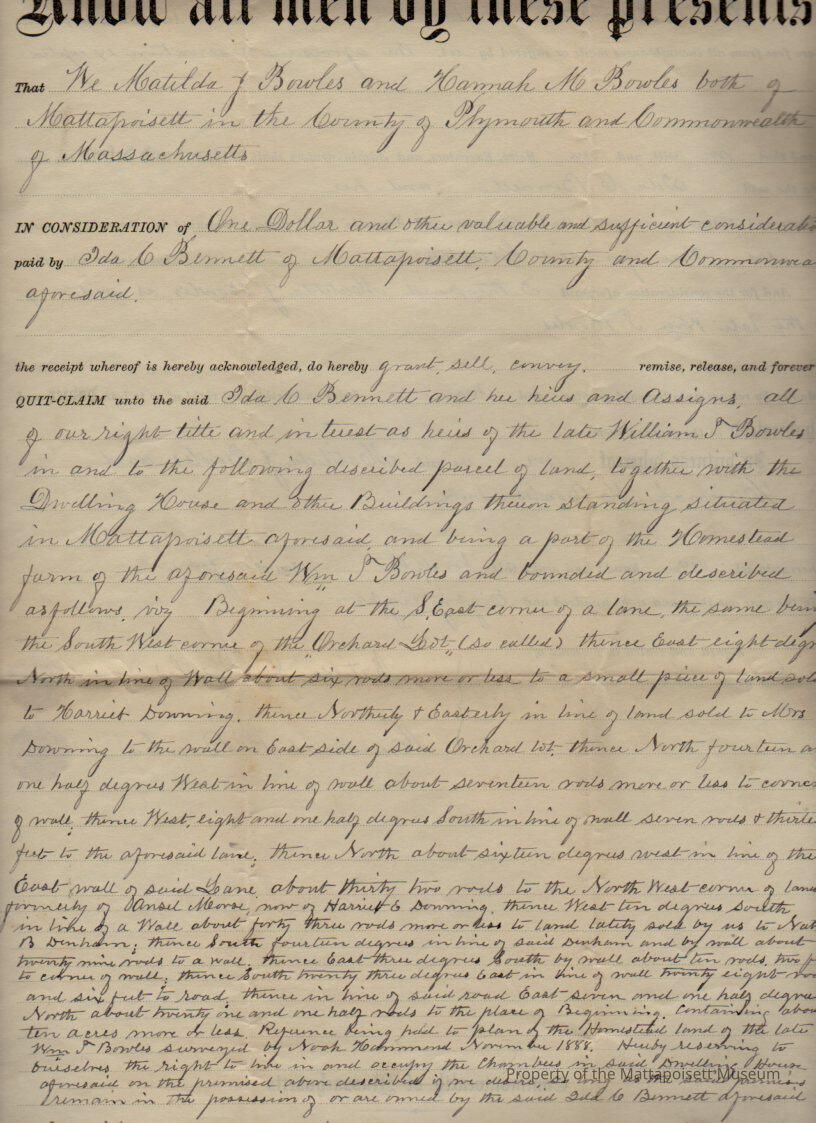 Know all men by these presents
That We Matilda J Bowles and Hannah M Bowles both of
Mattapoisett in the County of Plymouth and Commonwealth
of Massachusetts
IN CONSIDERATION of One Dollar and other valuable and sufficient consideratio
paid by Ida C Bennett of Mattapoisett, County and Commonwea
aforesaid.
the receipt whereof is hereby acknowledged, do hereby grant, sell, convey, remise, release, and forever
QUIT-CLAIM unto the said Ida C Bennett and her heirs and Assigns, all
of our right title and interest as heirs of the late William T Bowles
in and to the following described parcel of land, together with the
Dwelling House and other Buildings theron standing situated
in Mattapoisett aforesaid, and being a part of the Homestead
farm of the aforesaid Wm T Bowles and bounded and described
as follows, viz Beginning at the S,East corner of a lane, the same bein
the South West corner of the "Orchard Lot" (so called) thence East eight degr
North in line of Wall about six rods more or less to a small piece of land sol
to Harriet Downing, thence Northerly & Easterly in line of land sold to Mrs
Downing to the wall on East side of said Orchard lot, thence North fourteen a
one half degrees West in line of wall about seventeen rods more or less to corne
of wall; thence West, eight and one half degrees South in line of wall seven rods & thirte
feet to the aforesaid lane; thence North about sixteen degrees west in line of the
East wall of said Lane about thirty two rods to the North West corner of land
formerly of Ansel Morse, now of Harriet E Downing, thence West ten degrees South
in line of a Wall about forty three rods more or less to land lately sold by us to Nat
B Dinham; thence South fourteen degrees in line of said Dinham and by wall about
twenty nine rods to a wall, thence East three degrees South by wall about ten rods, two f
to corner of wall; thence South twenty three degrees East in line of wall twenty eight ro
and six feet to road, thence in line of said road East seven and one half degree
North about twenty one and one half rods to the place of Beginning. Containing abou
ten acres more or less. Reference being had to plan of the Homestead land of the late
Wm T Bowles surveyed by Noah Hammond November 1888. Hereby reserving to
Ourselves the right to live in and occupy the Chambers in said Dwelling House
aforesaid on the premised above described if we desire, as long as the said
remain in the possession of or are owned by the said Ida C Bennett aforesaid
Property of the Mattapoisett Museum